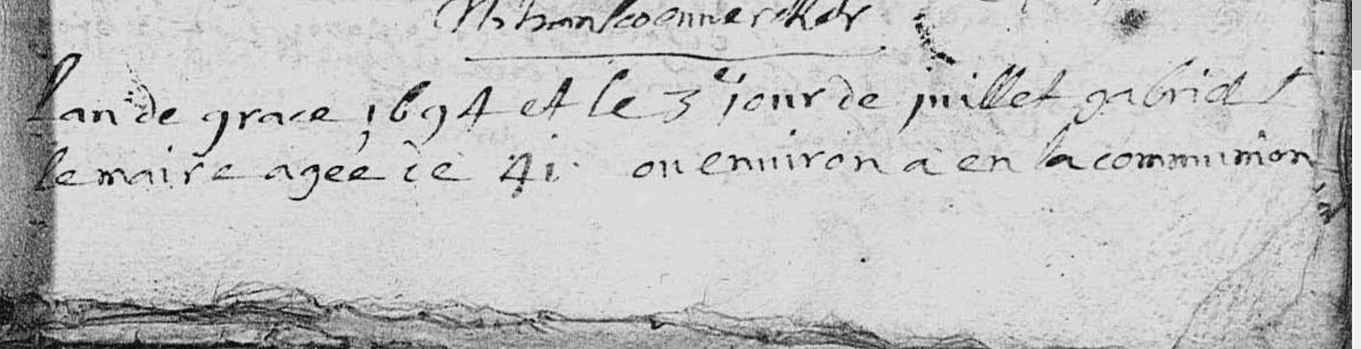 lan de grace 1694 et le 3e jour de juillet gabriel
lemaire agée de 41 ou environ a en la communion